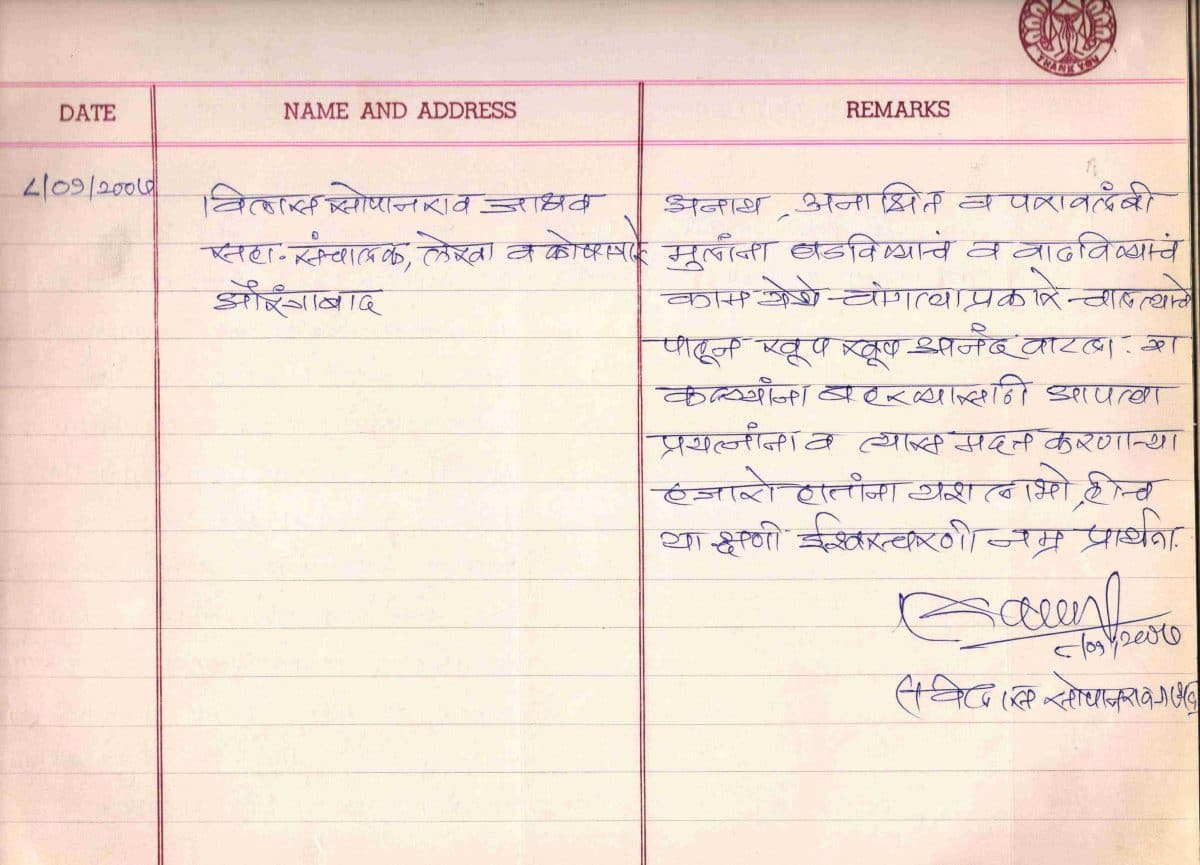 THANK YOU
DATE NAME AND ADDRESS REMARKS
८/०९/२००७
विलास सोपानराव जाधव
सहा. संचालक, लेखा व कोषागारे
औरंगाबाद
अनाथ, अनाश्रित व परावलंबी
मुलांना घडविण्याचं व वाढविण्याचं
काम येथे चांगल्याप्रकारे चालल्याचे
पाहून खूप खूप आनंद वाटला. या
कळ्यांना बहरण्यासाठी आपल्या
प्रयत्नांना व त्यास मदत करणाऱ्या
हजारो हातांना यश लाभो, हीच
या क्षणी ईश्वरचरणी नम्र प्रार्थना.
८/०९/२००७
विलास सोपानराव जाधव